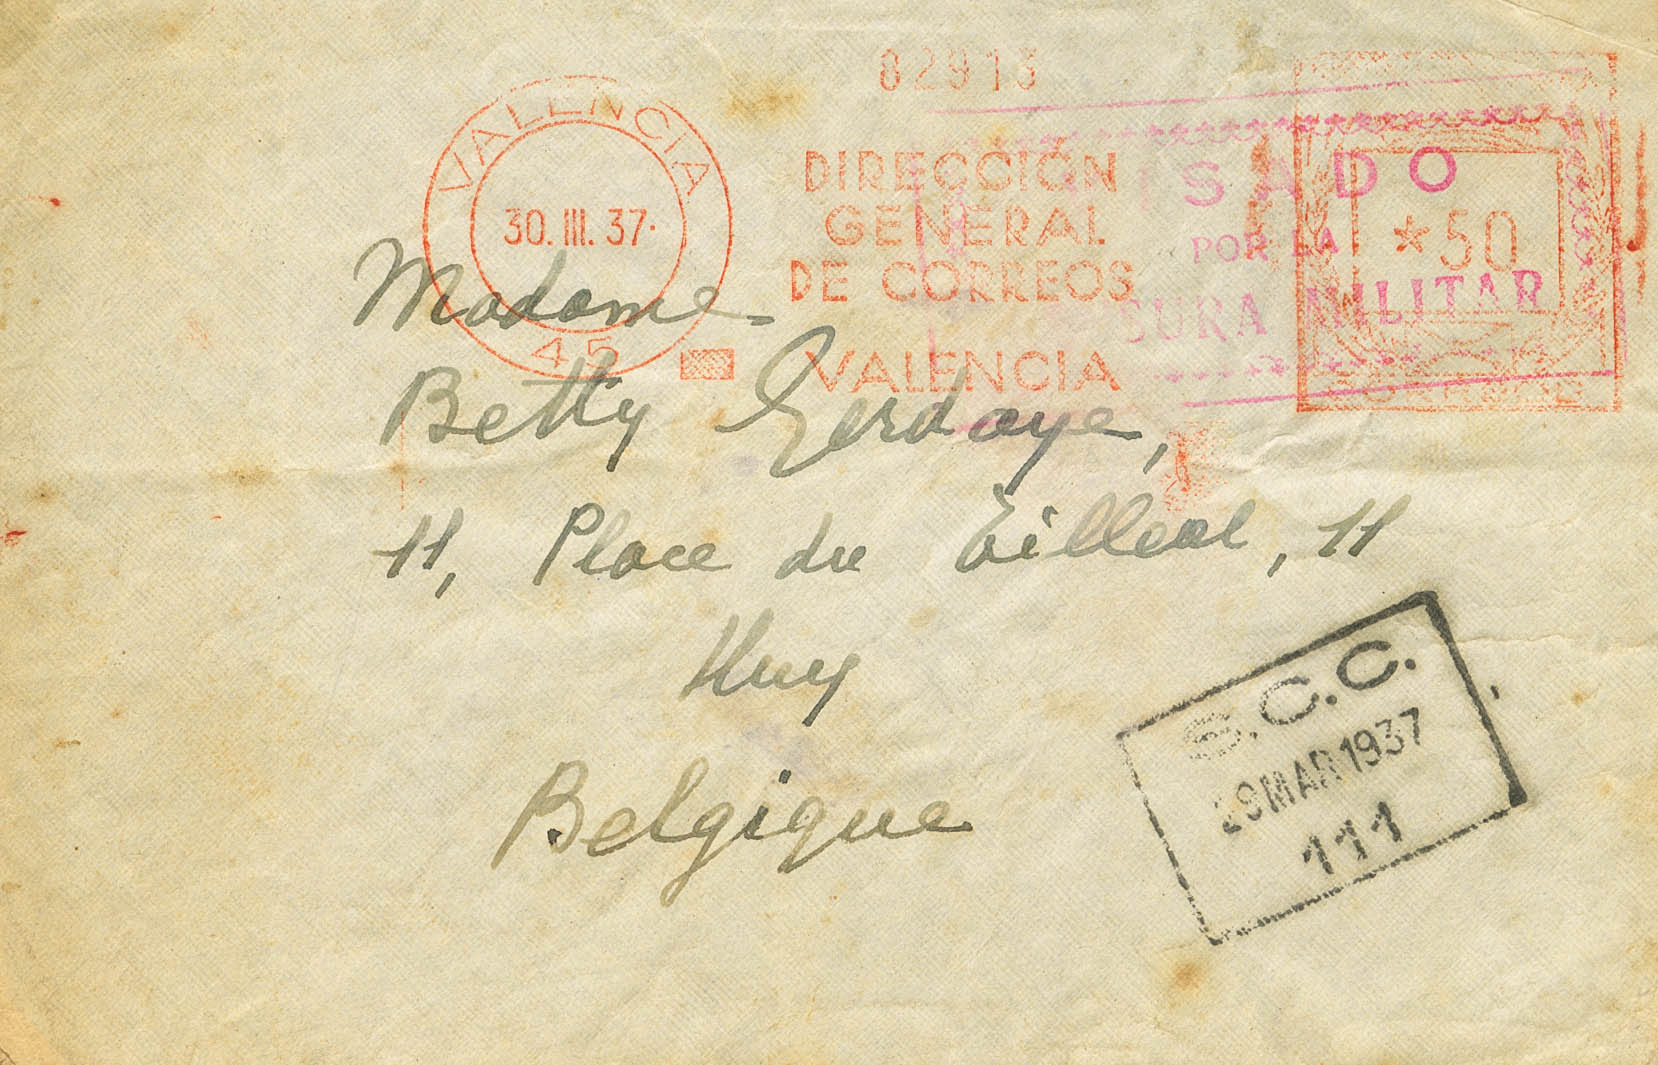 82913
VALENCIA
30.III.37.
45
DIRECCIÓN
GENERAL
DE CORREOS
VALENCIA
*50
ISADO
POR LA
SURA MILITAR
Madame
Betty Gerdaye,
11, Place du Tilleul, 11
Huy
Belgique
S.C.C.
29 MAR 1937
111